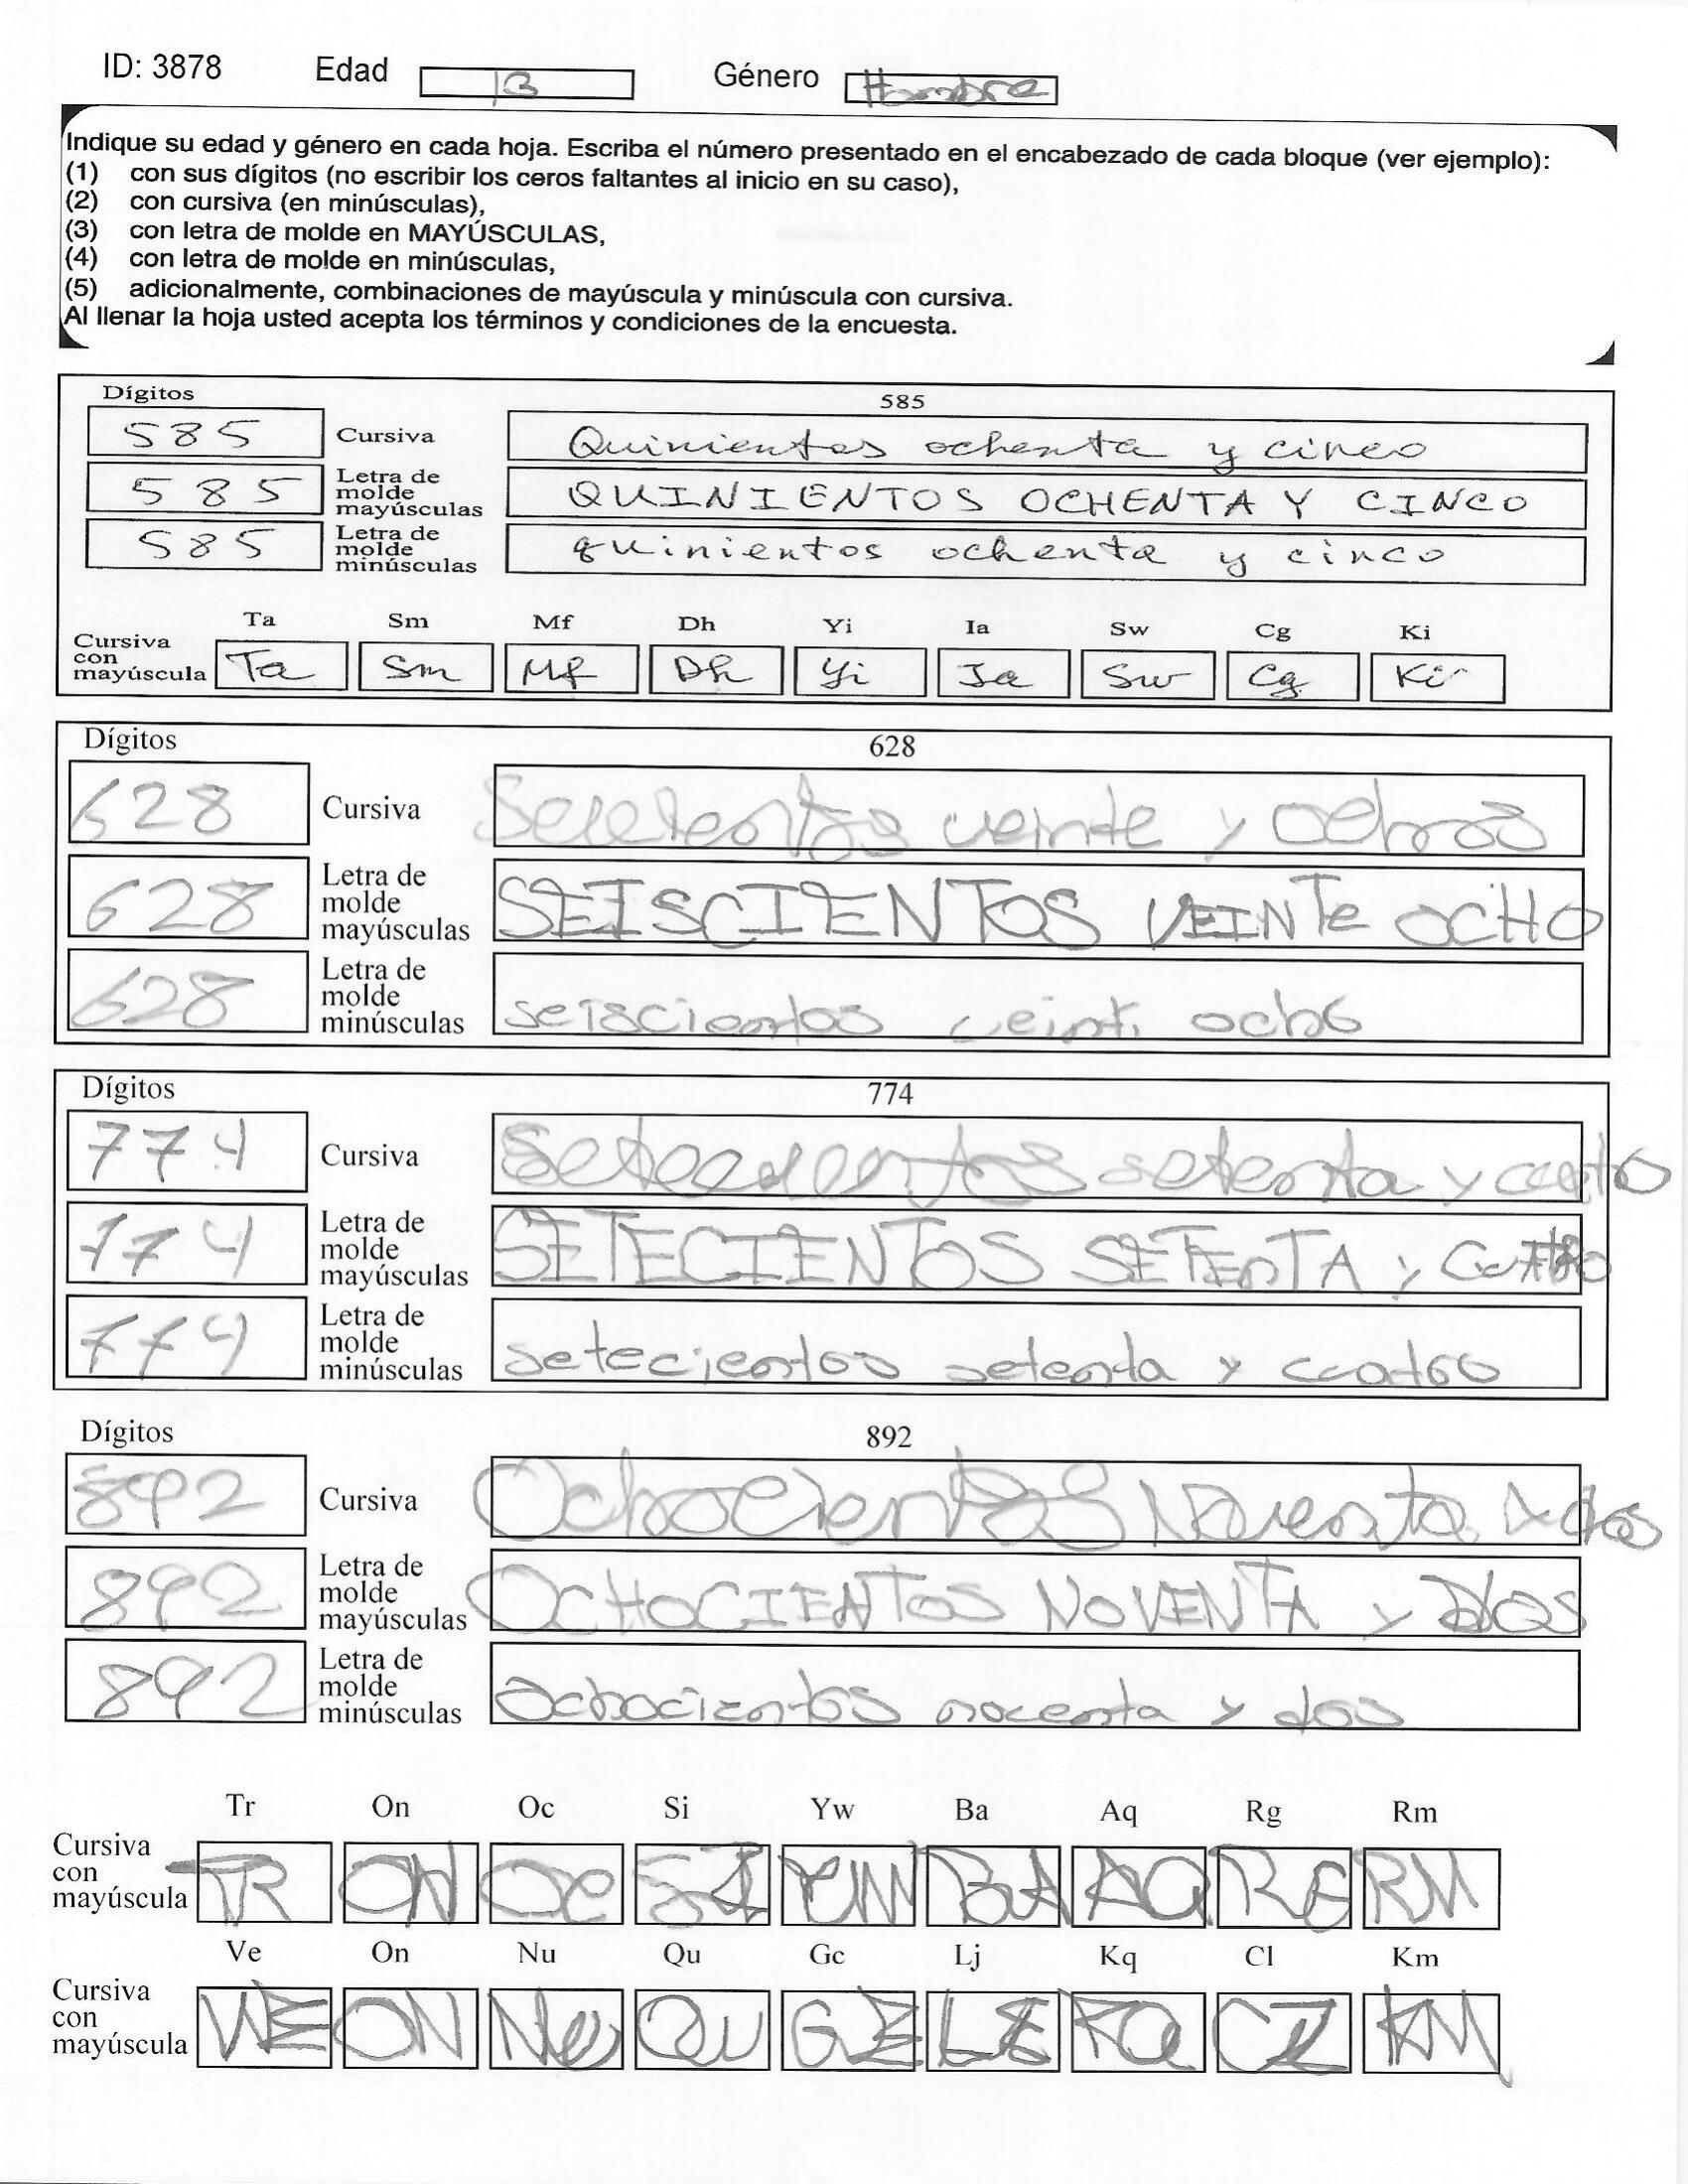 ID: 3878 Edad 13 Género Hombre
Indique su edad y género en cada hoja. Escriba el número presentado en el encabezado de cada bloque (ver ejemplo):
(1) con sus dígitos (no escribir los ceros faltantes al inicio en su caso),
(2) con cursiva (en minúsculas),
(3) con letra de molde en MAYÚSCULAS,
(4) con letra de molde en minúsculas,
(5) adicionalmente, combinaciones de mayúscula y minúscula con cursiva.
Al llenar la hoja usted acepta los términos y condiciones de la encuesta.
Dígitos 585
585 Cursiva Quinientos ochenta y cinco
585 Letra de molde mayúsculas QUINIENTOS OCHENTA Y CINCO
585 Letra de molde minúsculas quinientos ochenta y cinco
Ta Sm Mf Dh Yi Ia Sw Cg Ki
Cursiva con mayúscula Ta Sm Mf Dh Yi Ia Sw Cg Ki
Dígitos 628
628 Cursiva veinte y
628 Letra de molde mayúsculas SEISCIENTOS VEINTe OCHO
628 Letra de molde minúsculas seiscientos veinti ocho
Dígitos 774
774 Cursiva setenta y
774 Letra de molde mayúsculas SETECIENTOS y
774 Letra de molde minúsculas setecientos setenta y
Dígitos 892
892 Cursiva Ochocientos y dos
892 Letra de molde mayúsculas OCHOCIENTOS NOVENTA y DOS
892 Letra de molde minúsculas Ochocientos y dos
Tr On Oc Si Yw Ba Aq Rg Rm
Cursiva con mayúscula TR ON OC SI BA AQ RM
Ve On Nu Qu Gc Lj Kq Cl Km
Cursiva con mayúscula VE ON Nu QU KM